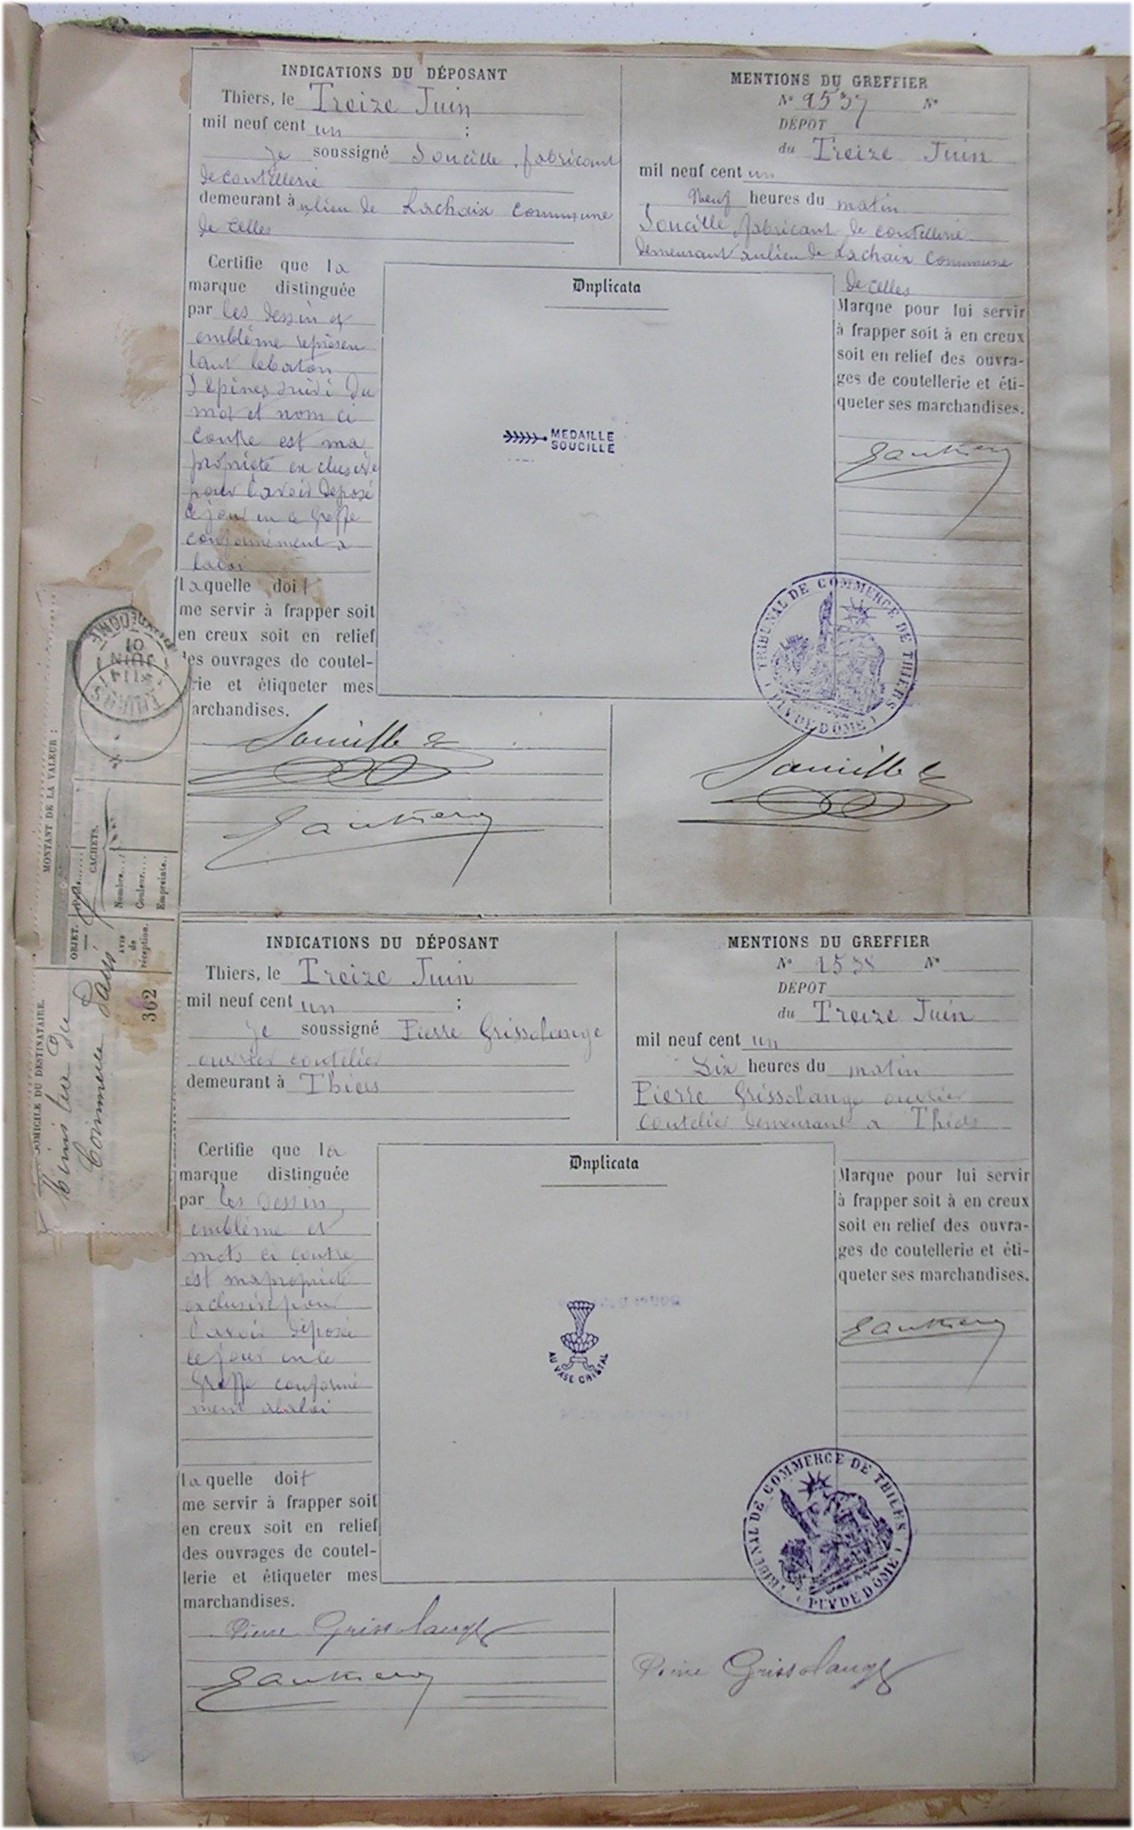 INDICATIONS DU DÉPOSANT
Thiers, le Treize Juin
mil neuf cent un ;
Je soussigné Soucille, fabricant
de coutellerie
demeurant à au lieu de Lachaix commune
de Celles
MENTIONS DU GREFFIER
N° 9537 N°
DÉPOT
du Treize Juin
mil neuf cent un
Neuf heures du matin
Soucille, fabricant de coutellerie
demeurant au lieu de Lachaix commune
de Celles
Certifie que la
marque distinguée
par les dessin et
emblème représen
tant le baton
d'épines suivi du
mot et nom ci
contre est ma
propriété exclusive
pour l'avoir déposé
ce jour en ce Greffe
conformément à
la loi
laquelle doit
me servir à frapper soit
en creux soit en relief
des ouvrages de coutel-
lerie et étiqueter mes
marchandises.
Duplicata
MEDAILLE
SOUCILLE
Marque pour lui servir
à frapper soit à en creux
soit en relief des ouvra-
ges de coutellerie et éti-
queter ses marchandises.
TRIBUNAL DE COMMERCE DE THIERS
( PUY DE DÔME )
Soucille
Soucille
THIERS
JUIN
01
PUY-DE-DOME
MONTANT DE LA VALEUR :
OBJET.
CACHETS.
Nombre....:
Couleur....:
Empreinte..:
AVIS
de
réception.
362
DOMICILE DU DESTINATAIRE.
Ministre du
Commerce Paris
INDICATIONS DU DÉPOSANT
Thiers, le Treize Juin
mil neuf cent un ;
Je soussigné Pierre Grissolange
ouvrier coutelier
demeurant à Thiers
MENTIONS DU GREFFIER
N° 9538 N°
DÉPOT
du Treize Juin
mil neuf cent un
Dix heures du matin
Pierre Grissolange ouvrier
coutelier demeurant à Thiers
Certifie que la
marque distinguée
par les dessin,
emblème et
mots ci contre
est ma propriété
exclusive pour
l'avoir déposé
ce jour en ce
Greffe conformé
ment à la loi
laquelle doit
me servir à frapper soit
en creux soit en relief
des ouvrages de coutel-
lerie et étiqueter mes
marchandises.
Duplicata
AU VASE CRISTAL
Marque pour lui servir
à frapper soit à en creux
soit en relief des ouvra-
ges de coutellerie et éti-
queter ses marchandises.
TRIBUNAL DE COMMERCE DE THIERS
( PUY DE DÔME )
Pierre Grissolange
Pierre Grissolange